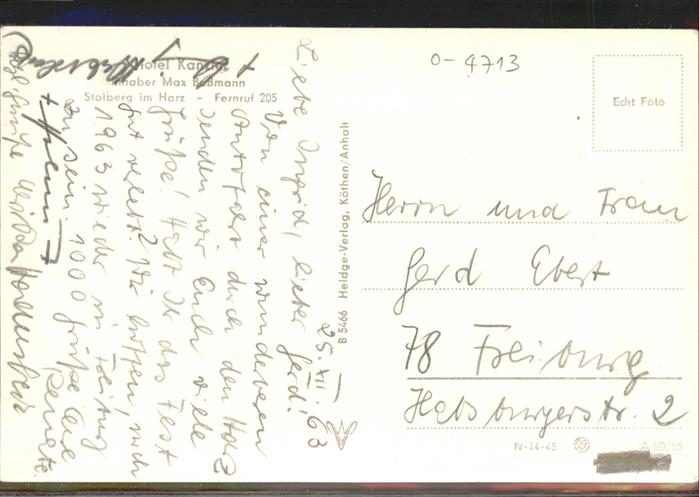 Hotel Kanzler
Inhaber Max Boßmann
Stolberg im Harz - Fernruf 205
25. XII. 63
Liebe Ingrid, lieber Gerd!
Von einer wunderbaren
Autofahrt durch den Harz
senden wir Euch viele
Grüße! Habt Ihr das Fest
gut verlebt? Wir hoffen, noch
1963 wieder in Freiburg
zu sein. 1000 Grüße Eure
Renate.
B 5466 Heldge-Verlag, Köthen/Anhalt
0-4713
Echt Foto
Herrn und Frau
Gerd Ebert
78 Freiburg
Habsburgerstr. 2
IV-14-45
A 89/55